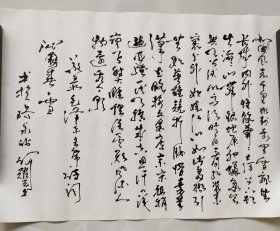 北国风光千里冰封万里雪飘望
长城内外惟余莽莽大河上下顿
失滔滔山舞银蛇原驰蜡象欲
与天公试比高须晴日看红装
素裹分外妖娆江山如此多娇引
无数英雄竞折腰惜秦皇
汉武略输文采唐宗宋祖稍
逊风骚一代天骄成吉思汗只识
弯弓射大雕俱往矣数风流人
物还看今朝
毛泽东主席诗词
沁园春雪